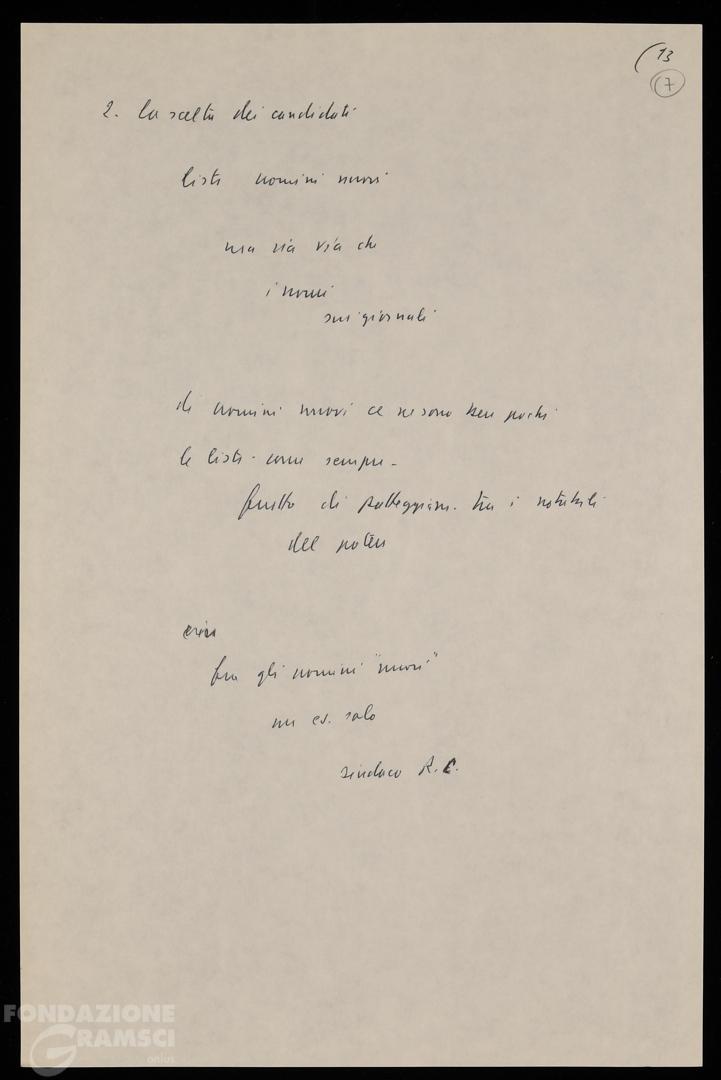 (13
(7)
2. La scelta dei candidati
liste uomini nuovi
ma via via che
i nomi
sui giornali
di uomini nuovi ce ne sono ben pochi
le liste - come sempre -
frutto di patteggiam. tra i notabili
del potere
fra gli uomini "nuovi"
un es. solo
sindaco R.C.
FONDAZIONE
GRAMSCI
onlus